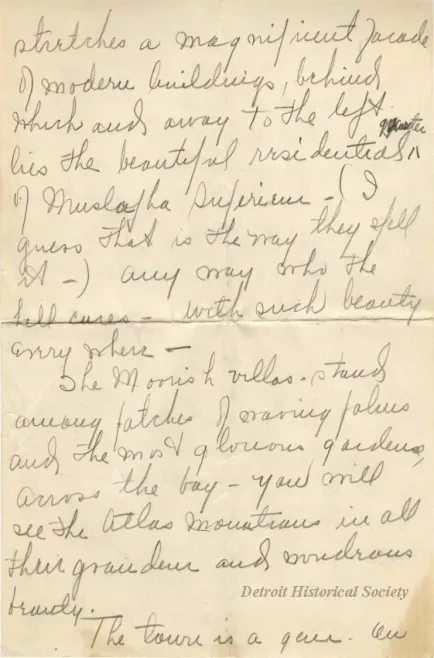 stretches a magnificent facade
of modern buildings, behind
which and away to the left
lies the beautiful residential quarter
of Mustapha Superieur - (I
guess that is the way they spell
it -) any way who the
hell cares - with such beauty
every where -
The Moorish villas. stand
among patches of waving palms
and the most glorious gardens,
across the bay - you will
see the Atlas Mountains in all
their grandeur and wondrous
beauty.
Detroit Historical Society
The town is a gem. an